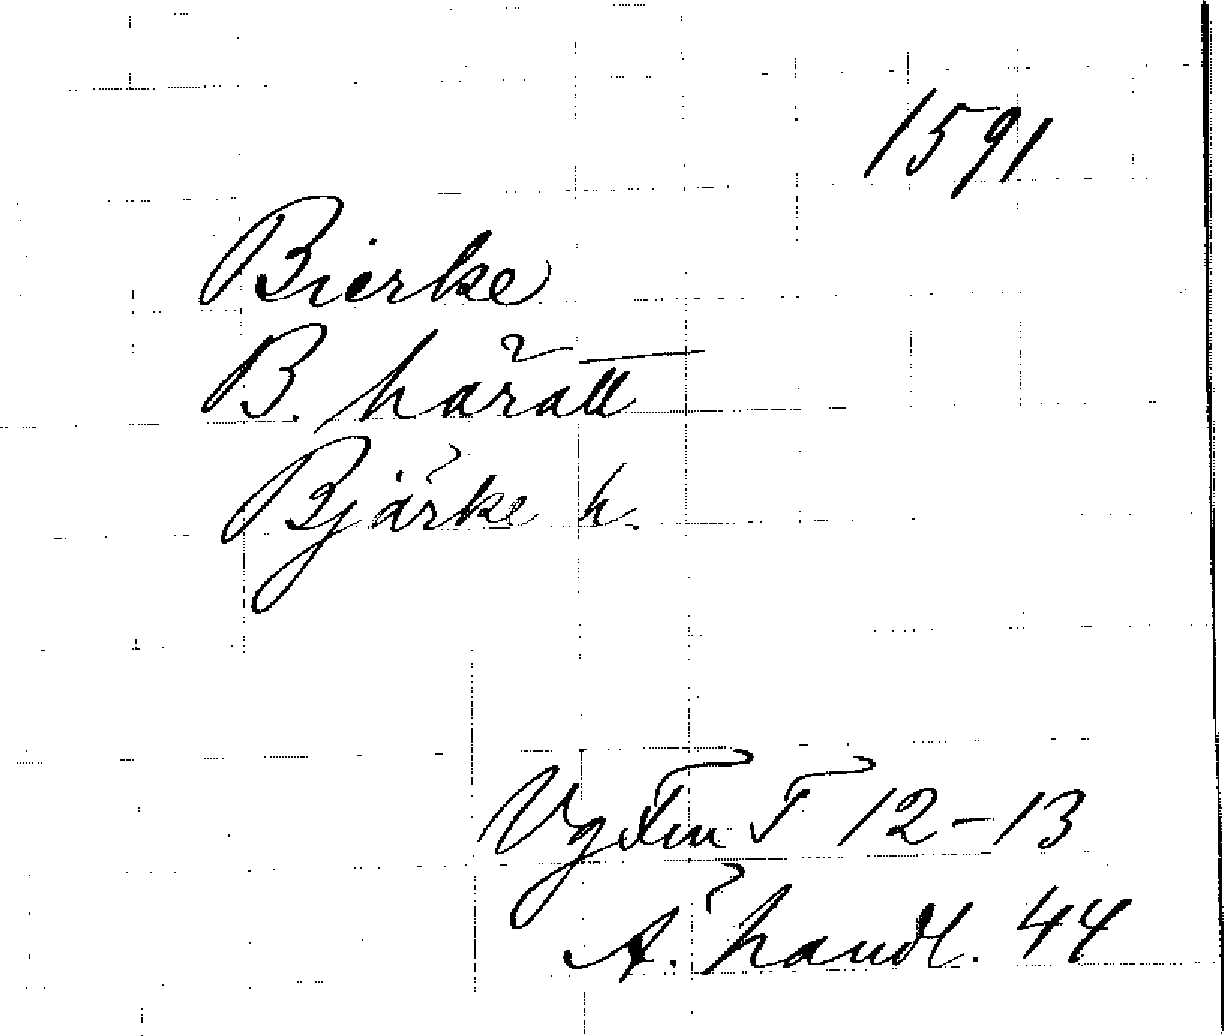 1591
Bierke
B. häratt
Bjärke h.
VgFmT 12-13
Ä. handl. 44